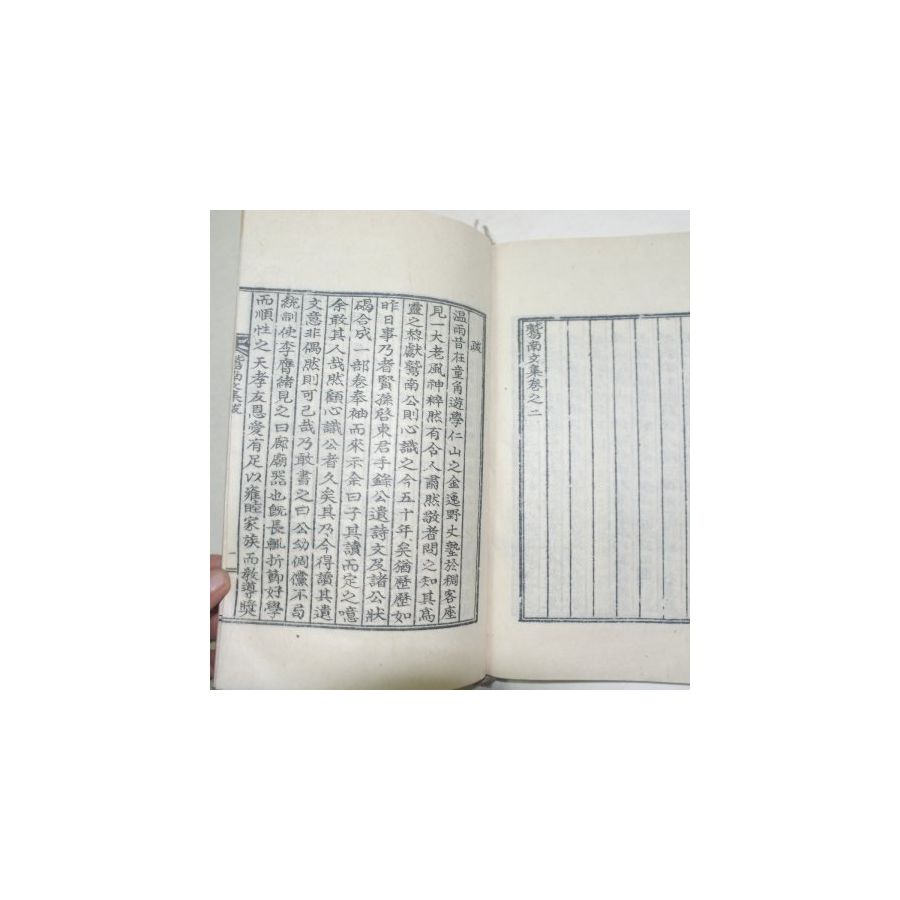 鷲南文集卷之二
跋
溫雨昔在童角遊學仁山之金逸野丈塾於稠客座
見一大老風神粹然有令人肅然敬者問之知其爲
靈之黎獻鷲南公則心識之今五十年矣猶歷歷如
昨日事乃者賢孫啓東君手錄公遺詩文及諸公狀
碣合成一部卷奉袖而來示余曰子其讀而定之噫
余敢其人哉然顧心識公者久矣其乃今得讀其遺
文意非偶然則可已哉乃敢書之曰公幼倜儻不局
統訓使李膺緖見之曰廊廟器也旣長輒折節好學
而順性之天孝友恩愛有足以雍睦家族而敎導獎
鷲南文集跋
一